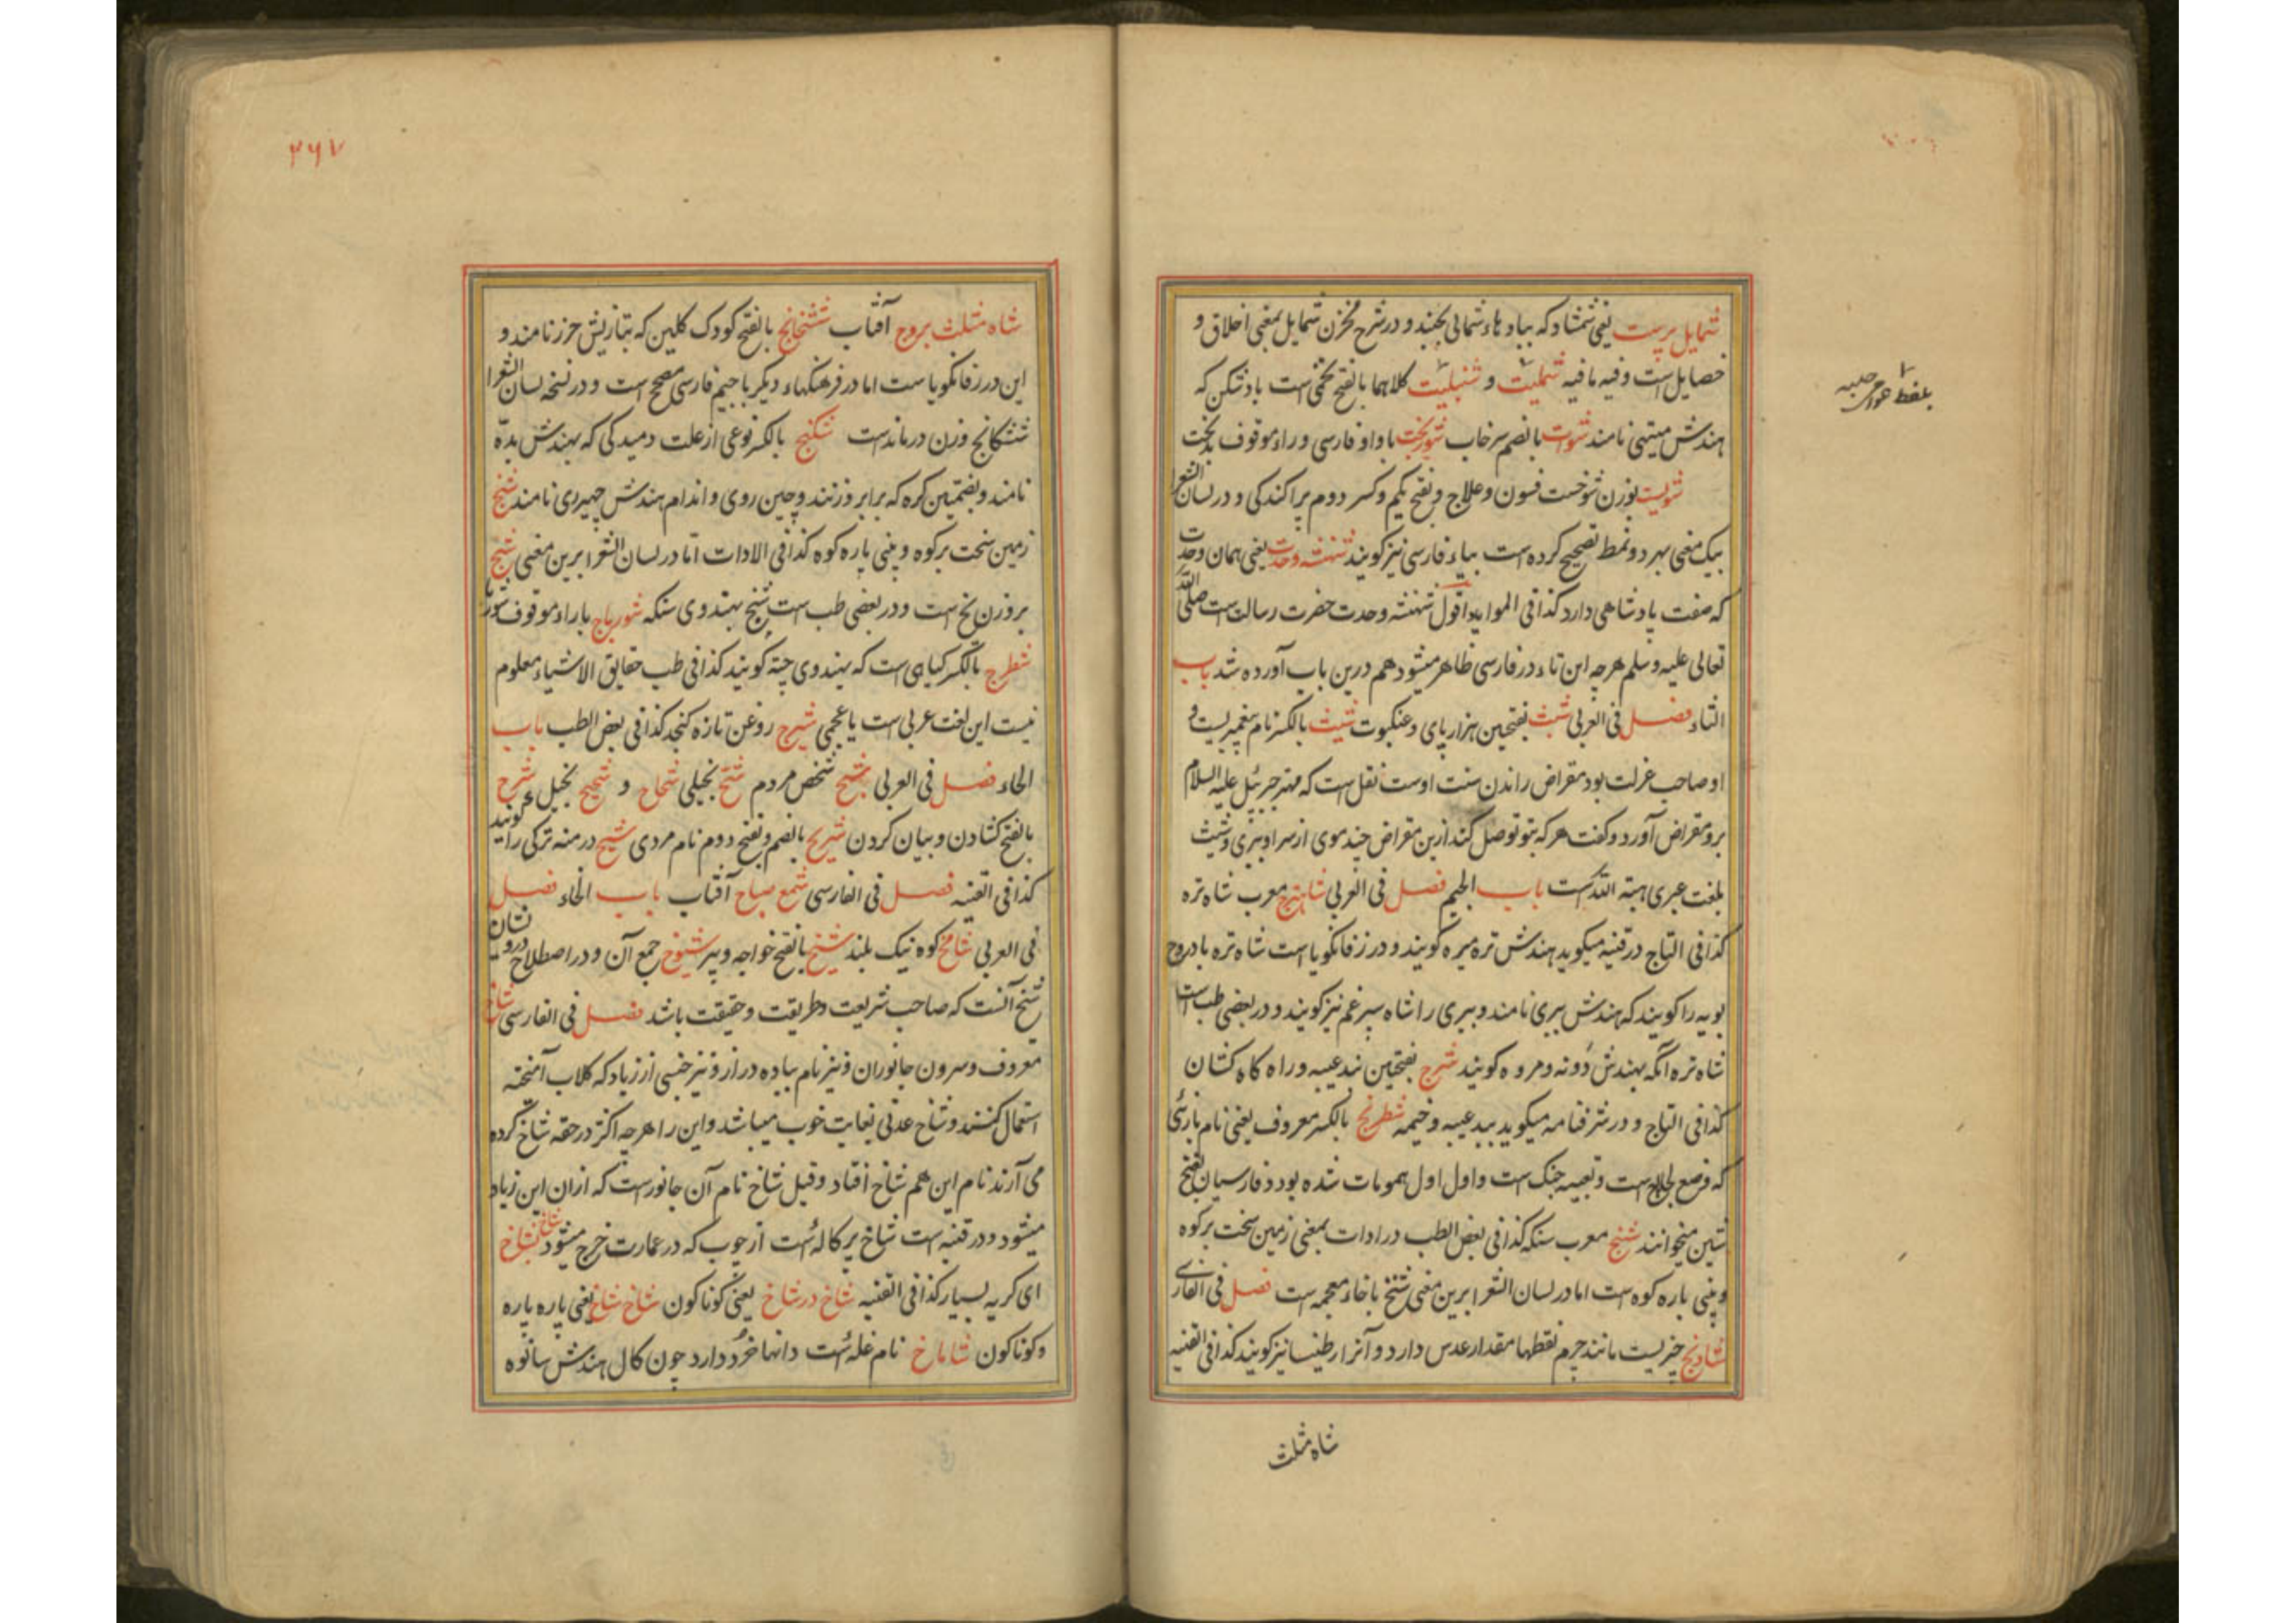 شمایل پرست یعنی شمشاد که بباد هاء شمالی بجنبد و در شرح مخزن شمایل بمعنی اخلاق و
خصایل است وفیه مافیه شملیت و شنبلیت کلاهما بالفتح تخمی است بادشکن که
هندش میتهی نامند شوات بالضم سرخاب شوربخت باواو فارسی و راء موقوف بدبخت
شولیت بوزن شوخست فسون و علاج و بفتح یکم وکسر دوم پراکندکی و در لسان الشعرا
بیک معنی بهر دو نمط تصحیح کرده است بیاء فارسی نیز کویند شهنشه وحدت یعنی همان وحدت
که صفت پادشاهی دارد کذا فی الموایداقول شهنشه وحدت حضرت رسالت است صلی الله
تعالی علیه وسلم هرچه این تاء در فارسی ظاهر میشود هم درین باب آورده شد باب
الثاء فصل فی العربی شبث بفتحین هزارپای و عنکبوت شیث بالکسر نام پیغمبریست و
او صاحب عزلت بود مقراض راندن سنت اوست نقل است که مهتر جبرئیل علیه السلام
برو مقراض آورد و کفت هرکه بتو توصل کند ازین مقراض چند موی از سر او ببری و شیث
بلغت عبری هبة الله است باب الجیم فصل فی العربی شاهترج معرب شاه تره
کذا فی التاج در قنیه میکوید هندش تره میره کویند و در زفانکویا است شاه تره بادروج
بویه را کویند که هندش ببری نامند و ببری را شاه سپرغم نیز کویند و در بعضی طب است
شاه تره آنکه بهندش دونه و مروه کویند شرج بفتحین بند عیبه و راه کاه کشان
کذا فی التاج و در شرفنامه میکوید بند عیبه و خیمه شطرنج بالکسر معروف یعنی نام بازئی
که وضع لجلاج است و تعبیه جنک است و اول اول همومات شده بود و فارسیان بفتح
شین میخوانند شنج معرب سنکه کذا فی بعض الطب در ادات بمعنی زمین سخت بر کوه
و بینی پاره کوه است اما در لسان الشعرا برین معنی شخ باخاء معجمه است فصل فی الفارسی
شادنج چیزیست مانند جرم نقطها مقدار عدس دارد و آنرا رطینسا نیز کویند کذا فی القنیه
شاه مثلث
بلغط اهوازی حلبه
۳۶۷
شاه مثلث بروج آفتاب ششخانج بالفتح کودک کلین که بتازیش خرز نامند و
این در زفانکویا است اما در فرهنکهاء دیکر باجیم فارسی مصحح است و در نسخه لسان الشعرا
ششکانج وزن درماندست شکنج بالکسر نوعی از علت دمیدکی که بهندش بده
نامند و بضمتین کره که برابر وزنند و چین روی و اندام هندش چهیری نامند شنج
زمین سخت بر کوه و بینی پاره کوه کذا فی الادات اما در لسان الشعرا برین معنی شنج
بر وزن نخ است و در بعضی طب است شنج بهندوی سنکه شورباج باراء موقوف شوربا
شطرج بالکسر کیاهی است که بهندوی چته کویند کذا فی طب حقایق الاشیاء معلوم
نیست این لغت عربی است یا عجمی شیرج روغن تازه کنجد کذا فی بعض الطب باب
الحاء فصل فی العربی شبح شخص مردم شح بخیلی شحاح و شحیح بخیل شرح
بالفتح کشادن و بیان کردن شریح بالضم و بفتح دوم نام مردی شیح درمنه ترکی را کویند
کذا فی القنیه فصل فی الفارسی شمع صباح آفتاب باب الخاء فصل
فی العربی شامخ کوه نیک بلند شیخ بالفتح خواجه و پیر شیوخ جمع آن و در اصطلاح درویشان
شیخ آنست که صاحب شریعت و طریقت و حقیقت باشد فصل فی الفارسی شاخ
معروف و سرون جانوران و نیز نام پیاده دراز و نیز خنسی از زباد که کلاب آمیخته
استعمال کنند و شاخ عدنی بغایت خوب میباشد و این را هرچه اکثر در حقه شاخ کرده
می آرند نام این هم شاخ افتاد و قیل شاخ نام آن جانورست که ازان این زباد
میشود و در قنیه است شاخ پرکالهٔ است از چوب که در عمارت خرج میشود شاخ شاخ
ای کریه بسیار کذا فی القنیه شاخ درشاخ یعنی کوناکون شاخ شاخ یعنی پاره پاره
و کوناکون شاماخ نام غلهٔ است دانها خرد دارد چون کال هندش سانوه